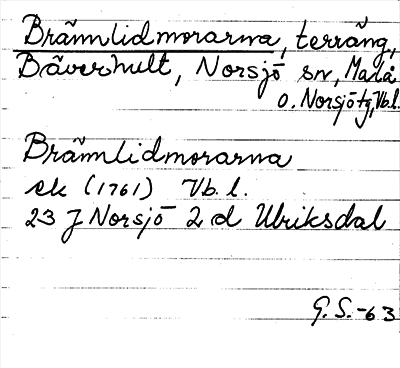 Brännlidmorarna, terräng,
Bäverhult, Norsjö sn, Malå
o. Norsjö tg, Vb.l.
Brännlidmorarna
ek (1761) Vb. l.
23 J Norsjö 2 d Ulriksdal
G. S. -63